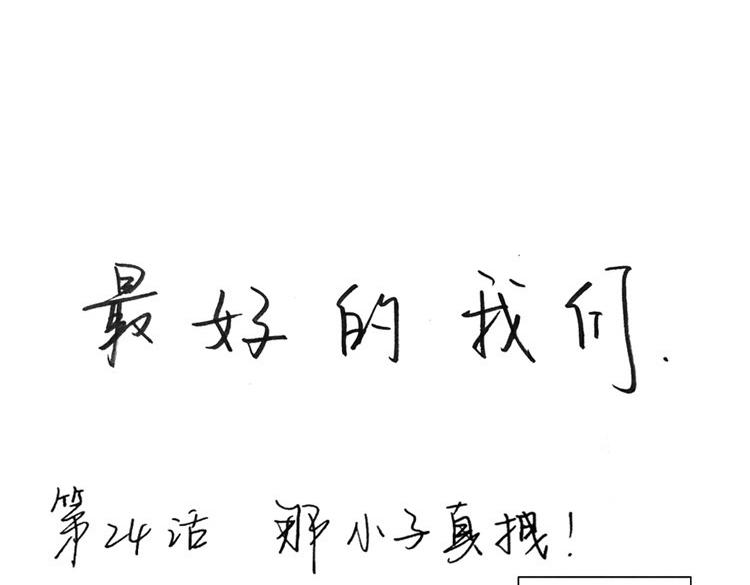 最好的我们.
第24话 那小子真拽!